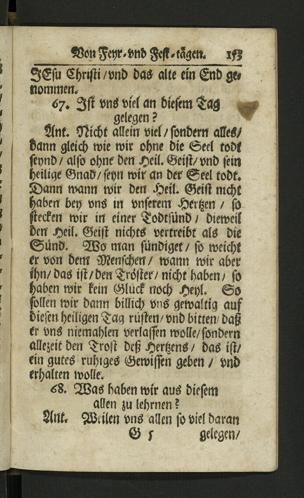 Von Feyr-vnd Fest-tägen. 153
JEsu Christi / vnd das alte ein End ge-
nommen.
67. Ist vns viel an diesem Tag
gelegen?
Ant. Nicht allein viel / sondern alles /
dann gleich wie wir ohne die Seel todt
seynd / also ohne den Heil. Geist / vnd sein
heilige Gnad / seyn wir an der Seel todt.
Dann wann wir den Heil. Geist nicht
haben bey vns in vnserem Hertzen / so
stecken wir in einer Todtsünd / dieweil
den Heil. Geist nichts vertreibt als die
Sünd. Wo man sündiget / so weicht
er von dem Menschen / wann wir aber
ihn / das ist / den Tröster / nicht haben / so
haben wir kein Glück noch Heyl. So
sollen wir dann billich vns gewaltig auf
diesen heiligen Tag rüsten / vnd bitten / daß
er vns niemahlen verlasse wolle / sondern
allezeit den Trost deß Hertzens / das ist /
ein gutes ruhiges Gewissen geben / vnd
erhalten wolle.
68. Was haben wir aus diesem
allen zu lehrnen?
Ant. Weilen vns allen so viel daran
G 5 gelegen /